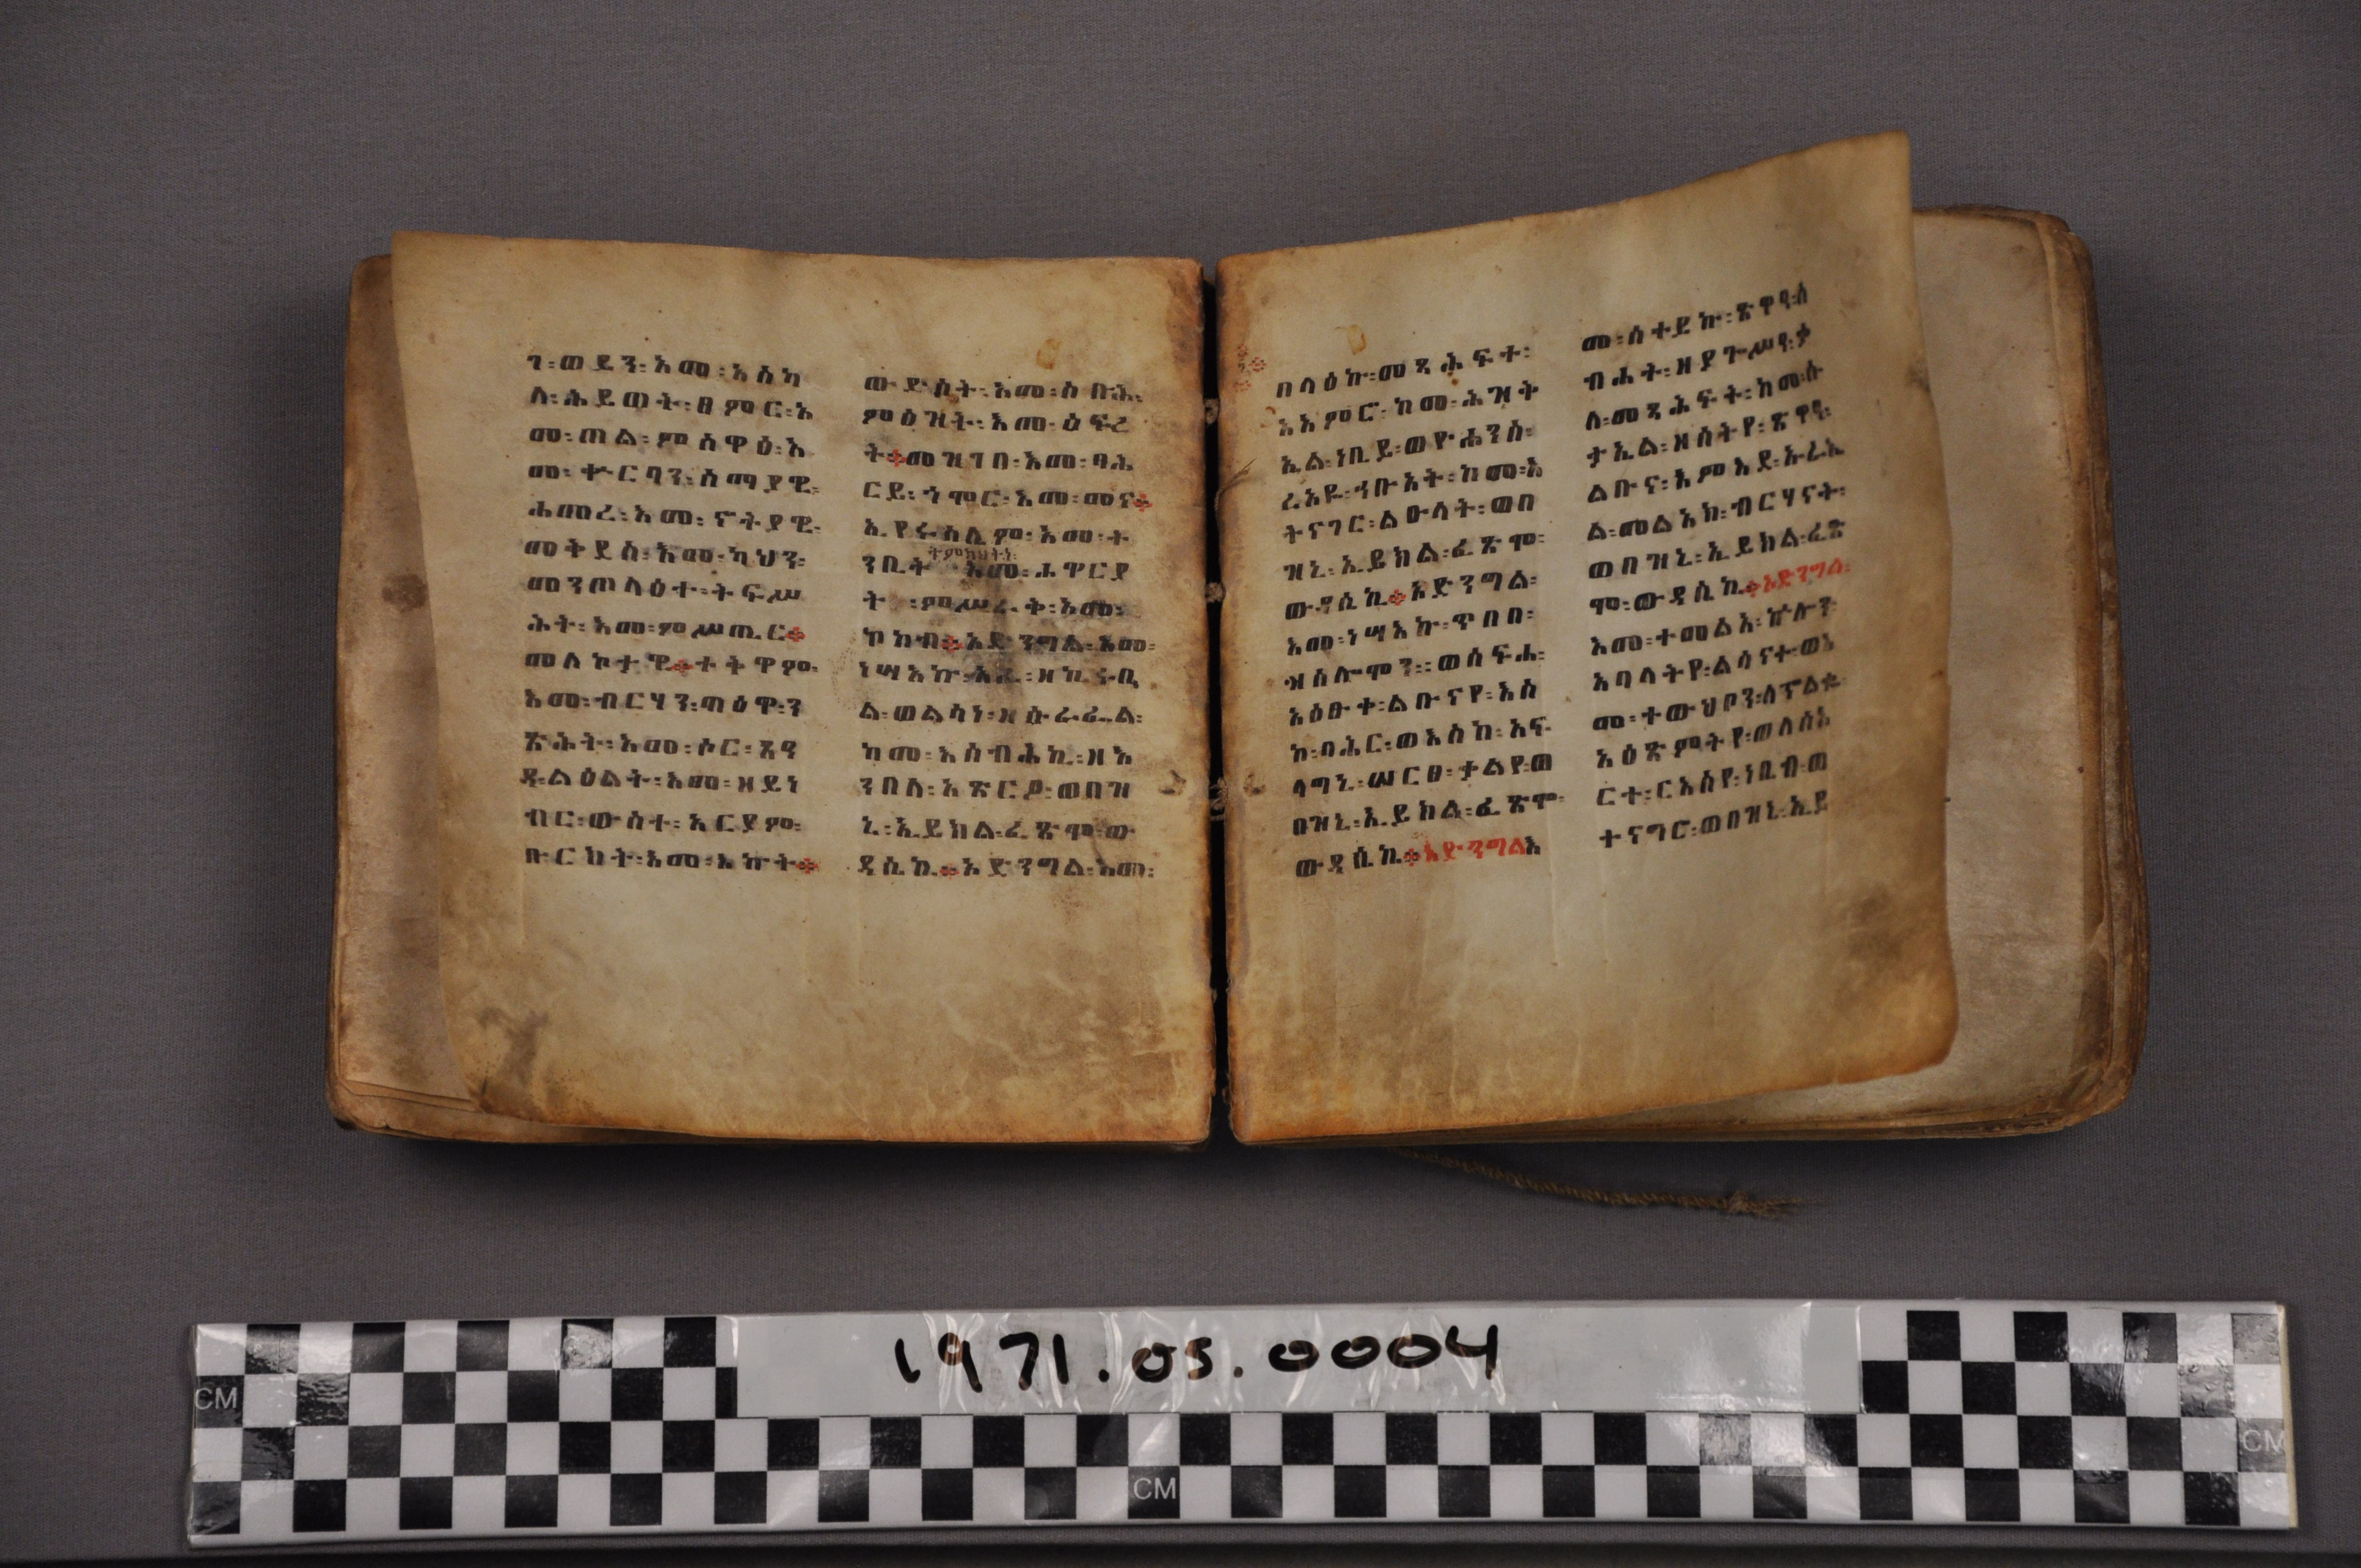 ገ፡ወይን፡እመ፡እስከ
ለ፡ሕይወት፡ፀምር፡እ
መ፡ጠል፡ምሰዋዕ፡እ
መ፡ቍርባን፡ሰማያዊ፡
ሐመረ፡እመ፡ኖትያዊ፡
መትደስ፡እመ፡ካህን፡
መንጠላዕተ፡ትፍሥ
ሕት፡እመ፡ምሥጢር።
መለኮታዊ።ተትዋም፡
እመ፡ብርሃን፡ጣዕዋ፡ን
ጽሕት፡እመ፡ሶር፡ጸዓ
ዳ፡ልዕልት፡እመ፡ዘይነ
ብር፡ውስተ፡አርያም፡
ቡርክት፡እመ፡እኵት።
ውድስት፡እመ፡ስቡሕ፡
ምዕዝት፡እመ፡ዕፍረ
ት።መዝገበ፡እመ፡ባሕ
ርይ፡ጎሞር፡እመ፡መና።
ኢየሩሳሌም፡እመ፡ት
ንቢት እመ፡ሐዋርያ
ት፡ምሥራቅ፡እመ፡
ኮከብ።እድንግል፡እመ፡
ነሣእኩ፡አፈ፡ዘኪሩቤ
ል፡ወልሳነ፡ዘሱራፌል፡
ከመ፡እሰብሕኪ፡ዘእ
ንበለ፡አጽርዖ፡ወበዝ
ኒ፡ኢይክል፡ፈጽሞ፡ው
ዳሴኪ።እድንግል፡እመ፡
በላዕኩ፡መጻሕፍተ፡
አእምር፡ከመ፡ሕዝት
ኤል፡ነቢይ፡ወዮሐንስ፡
ረእዬ፡ኅቡአት፡ከመ፡እ
ትናገር፡ልዑላት፡ወበ
ዝኒ፡ኢይክል፡ፈጽሞ፡
ውዳሴኪ።እድንግል፡
እመ፡ነሣእኩ፡ጥበበ፡
ዝሰሎሞን፡፡ወስፍሐ፡
አዕፁተ፡ልቡናየ፡እስ
ከ፡ባሕር፡ወእስከ፡አፍ
ላግኒ፡ሠርፀ፡ቃልየ፡ወ
በዝኒ፡ኢይክል፡ፈጽሞ፡
ውዳሴኪ።እድንግልእ
መ፡ሰተይኩ፡ጽዋዓ፡ለ
ብሐት፡ዘያጐሥዓ፡ቃ
ለ፡መጻሕፍት፡ከመ፡ሱ
ታኤል፡ዘሰትየ፡ጽዋዓ፡
ልቡና፡እምእደ፡ኡራኤ
ል፡መልአከ፡ብርሃናት፡
ወበዝኒ፡ኢይክል፡ፈጽ
ሞ፡ውዳሴኪ።እድንግል፡
እመ፡ተመልአ፡ኵሎን፡
አባላትየ፡ልሳናተ፡ወእ
መ፡ተውህቦን፡ለኍልቈ፡
አዕጽምትየ፡ወለስእ
ርተ፡ርእስየ፡ነቢብ፡ወ
ተናግር፡ወበዝኒ፡ኢይ
1971.05.0004
CM
CM
CM